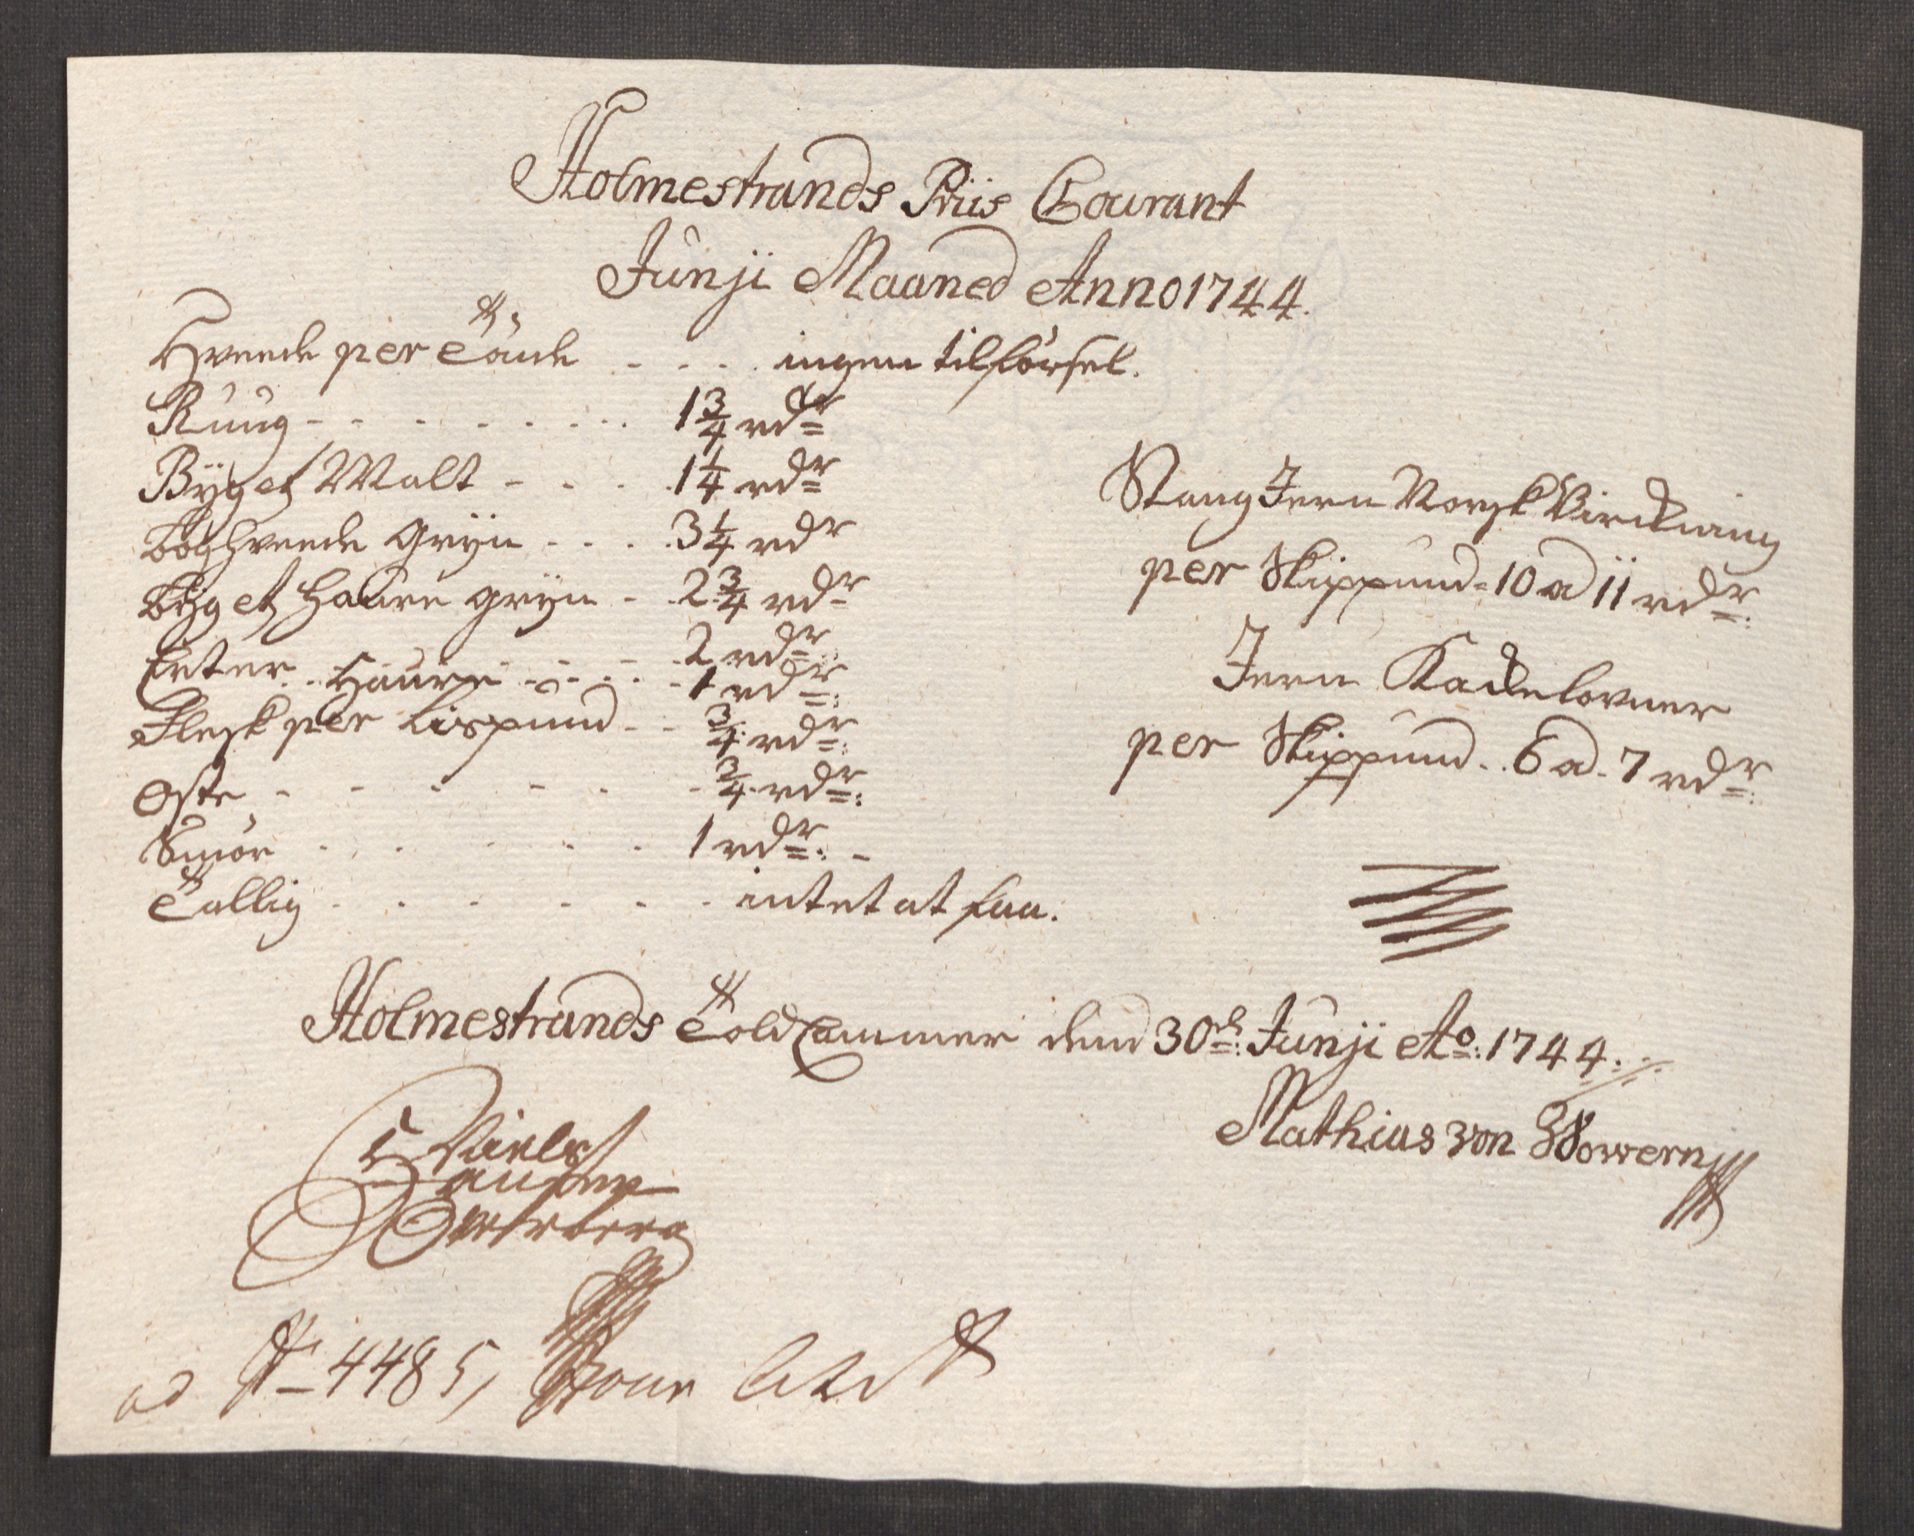 Holmestrands Priis Courant
Junji Maaned Anno 1744.
Hveede per Tönde - - - ingen tilförsel.
Ruug - - - - - - - 1 3/4 rdr
Byg et Malt - - - 1 1/4 rdr
Boghveede Gryn - - - 3 1/4 rdr
Byg et Haure gryn - 2 3/4 rdr
Erter - - - - 2 rdr
Haure - - - - 1 rdr
Flesk per Lispund - - 3/4 rdr
Oste - - - - - - 3/4 rdr
Smör - - - - - 1 rdr
Tallig - - - - - - intet at faa.
Stang Jern Norsk Virckning
per Skippund - 10 a 11 rdr
Jern Kackelovner
per Skippund - 6 a 7 rdr
Holmestrands Told Cammer dend 30te Junji Ao 1744.
Mathias von Wowern
Niels
Hansen
ad No 4485,